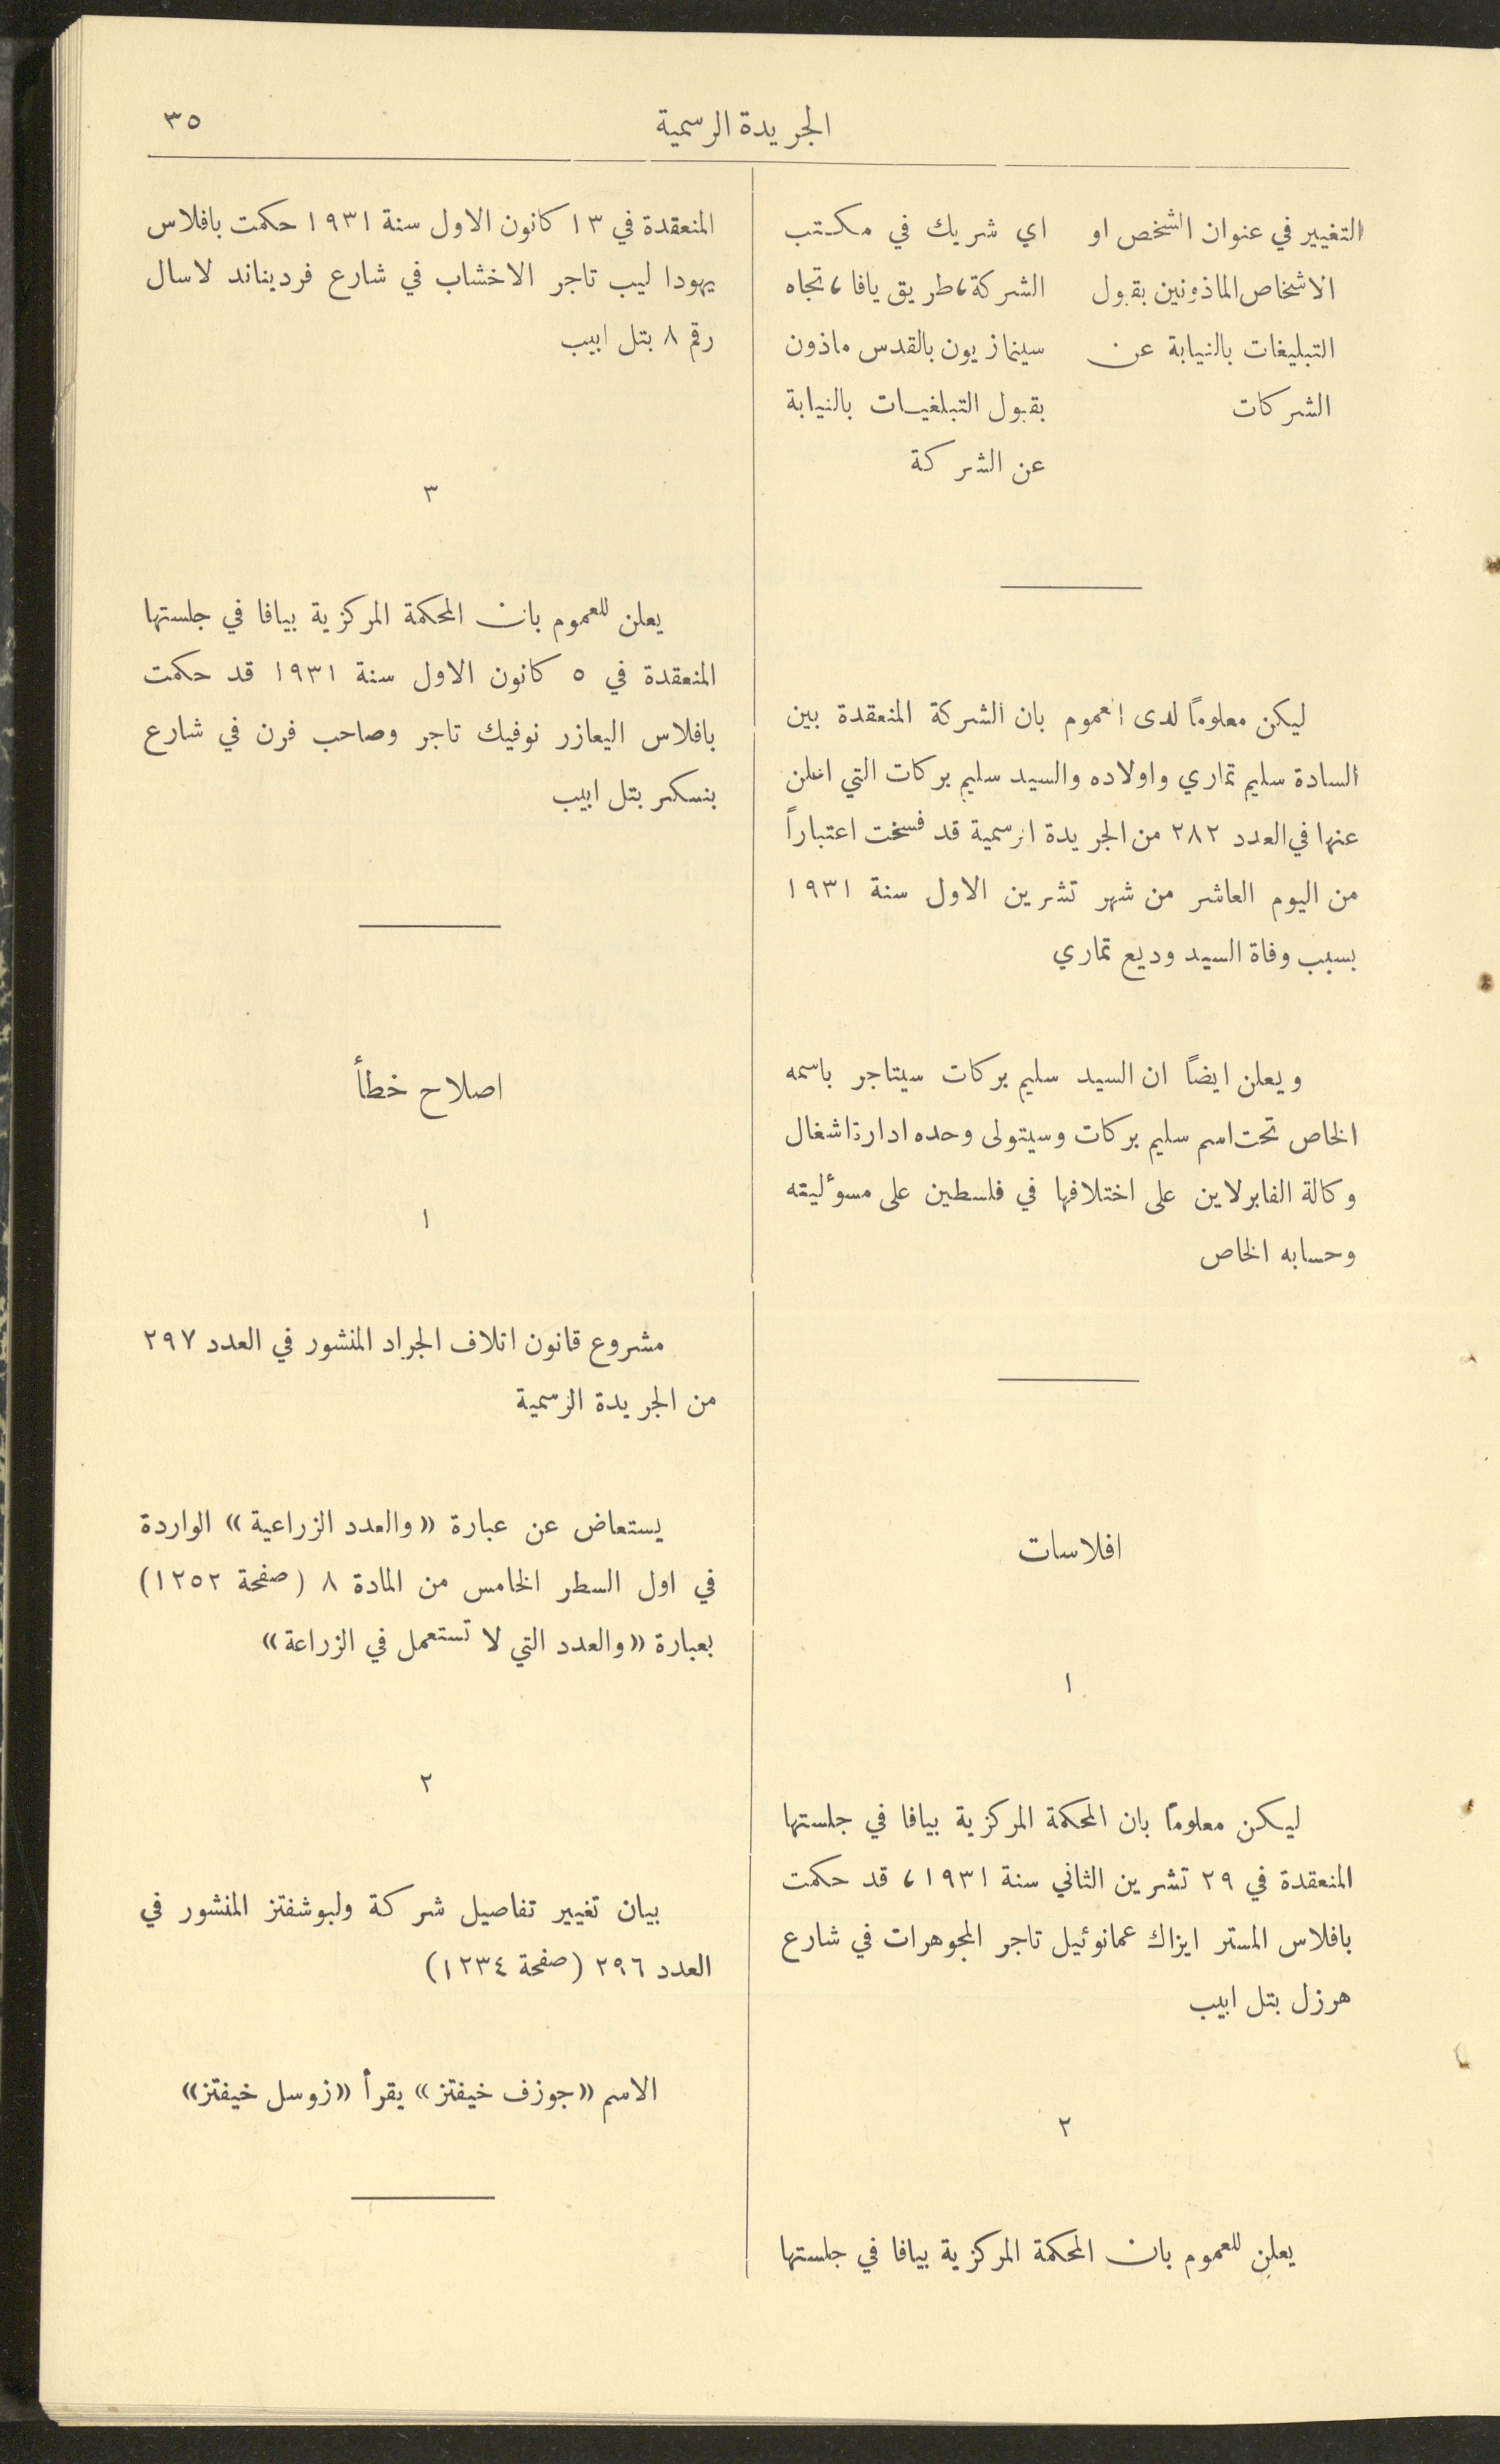 الجريدة الرسمية
٣٥
التغيير في عنوان الشخص او
الاشخاص الماذونين بقبول
التبليغات بالنيابة عن
الشركات
اي شريك في مكتب
الشركة، طريق يافا، تجاه
سينما زيون بالقدس ماذون
بقبول التبلغيات بالنيابة
عن الشركة
ليكن معلوماً لدى العموم بان الشركة المنعقدة بين
السادة سليم تماري واولاده والسيد سليم بركات التي اعلن
عنها في العدد ٢٨٢ من الجريدة الرسمية قد فسخت اعتباراً
من اليوم العاشر من شهر تشرين الاول سنة ١٩٣١
بسبب وفاة السيد وديع تماري
ويعلن ايضاً ان السيد سليم بركات سيتاجر باسمه
الخاص تحت اسم سليم بركات وسيتولى وحده ادارة اشغال
وكالة الفابرلاين على اختلافها في فلسطين على مسوٴليته
وحسابه الخاص
افلاسات
١
ليكن معلوماً بان المحكمة المركزية بيافا في جلستها
المنعقدة في ٢٩ تشرين الثاني سنة ١٩٣١، قد حكمت
بافلاس المستر ايزاك عمانوئيل تاجر المجوهرات في شارع
هرزل بتل ابيب
٢
يعلن للعموم بان المحكمة المركزية بيافا في جلستها
المنعقدة في ١٣ كانون الاول سنة ١٩٣١ حكمت بافلاس
يهودا ليب تاجر الاخشاب في شارع فرديناند لاسال
رقم ٨ بتل ابيب
٣
يعلن للعموم بان المحكمة المركزية بيافا في جلستها
المنعقدة في ٥ كانون الاول سنة ١٩٣١ قد حكمت
بافلاس اليعازر نوفيك تاجر وصاحب فرن في شارع
بنسكر بتل ابيب
اصلاح خطأ
١
مشروع قانون اتلاف الجراد المنشور في العدد ٢٩٧
من الجريدة الرسمية
يستعاض عن عبارة «والعدد الزراعية» الواردة
في اول السطر الخامس من المادة ٨ (صفحة ١٢٥٢)
بعبارة «والعدد التي لا تستعمل في الزراعة»
٢
بيان تغيير تفاصيل شركة ولبوشفتز المنشور في
العدد ٢٩٦ (صفحة ١٢٣٤)
الاسم «جوزف خيفتز» يقرأ «زوسل خيفتز»